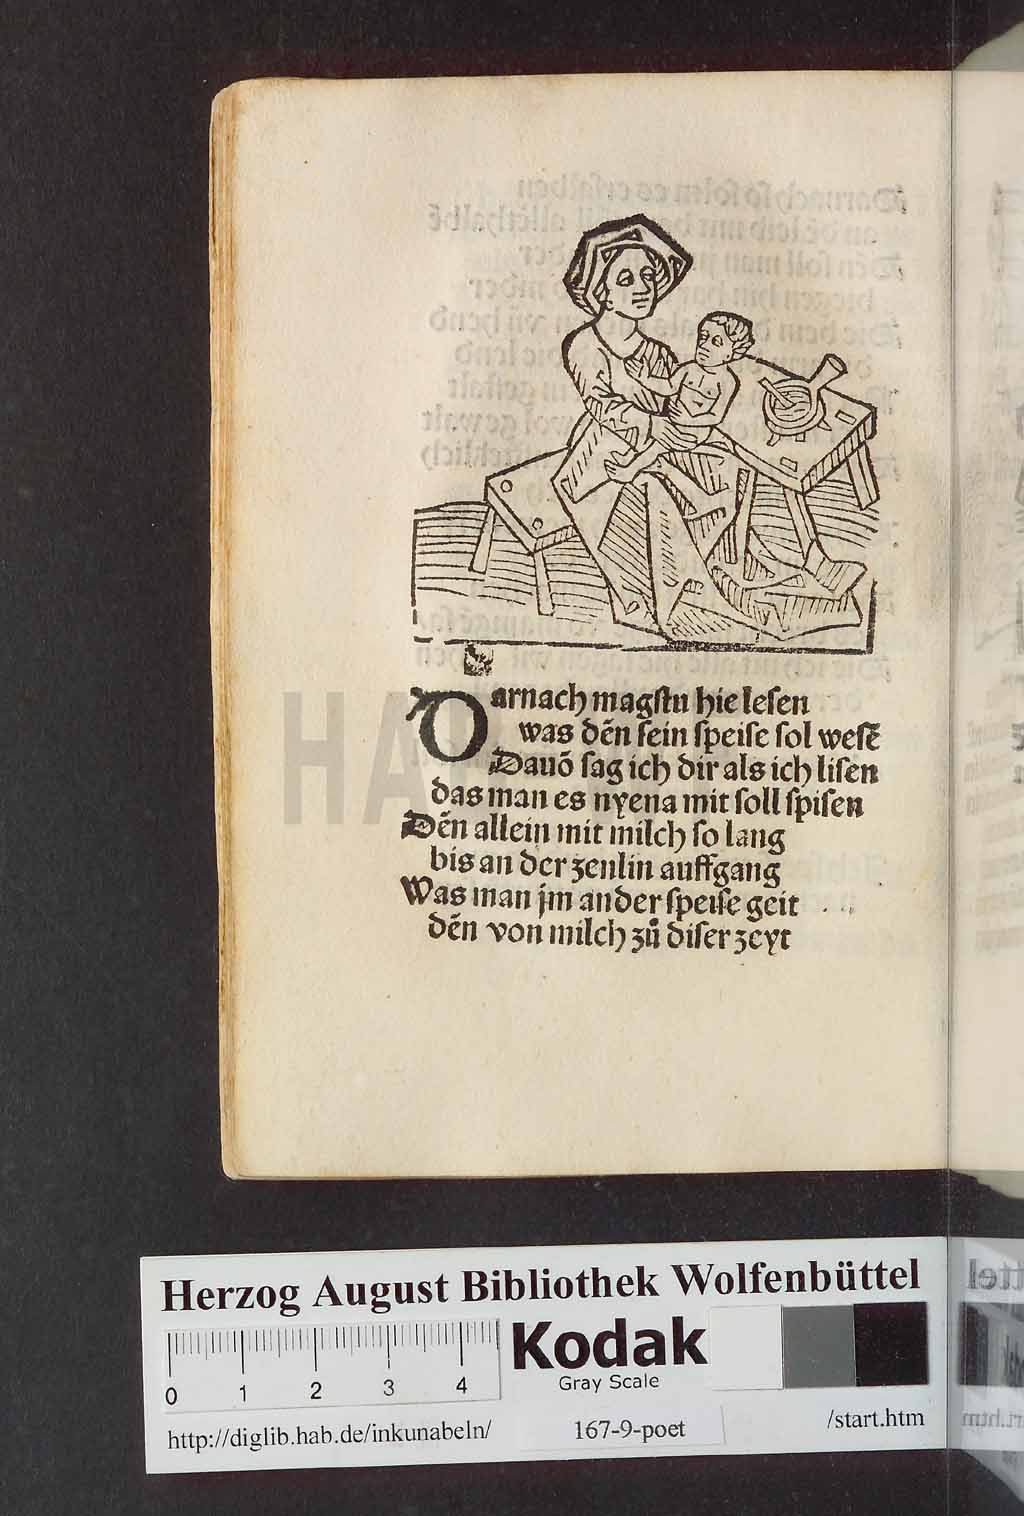 Darnach magstu hie lesen
was dēn sein speise sol wesē
Dauō sag ich dir als ich lisen
das man es nyena mit soll spisen
Dēn allein mit milch so lang
bis an der zenlin auffgang
Was man jm ander speise geit
dēn von milch zů diser zeyt
HAB
Herzog August Bibliothek Wolfenbüttel
0 1 2 3 4
Kodak
Gray Scale
http://diglib.hab.de/inkunabeln/ 167-9-poet /start.htm